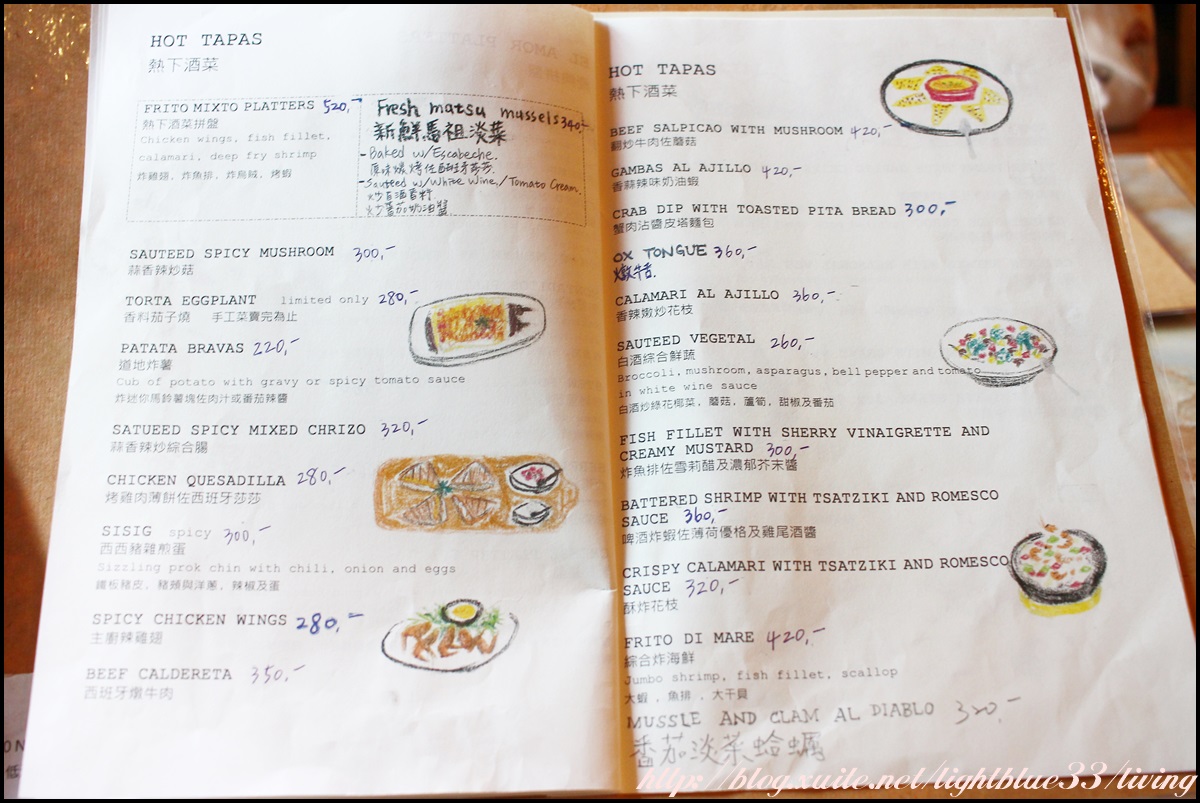 HOT TAPAS
熱下酒菜
FRITO MIXTO PLATTERS 520,-
熱下酒菜拼盤
Chicken wings, fish fillet,
calamari, deep fry shrimp
炸雞翅, 炸魚排, 炸烏賊, 烤蝦
Fresh matsu mussels 340,-
新鮮馬祖淡菜
- Baked w/Escabeche.
原味爐烤佐西班牙莎莎.
- Sauteed w/White Wine,/Tomato Cream.
炒白酒香料
炒蕃茄奶油醬
SAUTEED SPICY MUSHROOM 300,-
蒜香辣炒菇
TORTA EGGPLANT limited only 280,-
香料茄子燒 手工菜賣完為止
PATATA BRAVAS 220,-
道地炸薯
Cub of potato with gravy or spicy tomato sauce
炸迷你馬鈴薯塊佐肉汁或番茄辣醬
SATUEED SPICY MIXED CHRIZO 320,-
蒜香辣炒綜合腸
CHICKEN QUESADILLA 280,-
烤雞肉薄餅佐西班牙莎莎
SISIG spicy 300,-
西西豬雜煎蛋
Sizzling prok chin with chili, onion and eggs
鐵板豬皮, 豬頰與洋蔥, 辣椒及蛋
SPICY CHICKEN WINGS 280,-
主廚辣雞翅
BEEF CALDERETA 350,-
西班牙燉牛肉
HOT TAPAS
熱下酒菜
BEEF SALPICAO WITH MUSHROOM 420,-
翻炒牛肉佐蘑菇
GAMBAS AL AJILLO 420,-
香蒜辣味奶油蝦
CRAB DIP WITH TOASTED PITA BREAD 300,-
蟹肉沾醬皮塔麵包
OX TONGUE 360,-
燉牛舌.
CALAMARI AL AJILLO 360,-
香辣嫩炒花枝
SAUTEED VEGETAL 260,-
白酒綜合鮮蔬
Broccoli, mushroom, asparagus, bell pepper and tomato
in white wine sauce
白酒炒綠花椰菜, 蘑菇, 蘆筍, 甜椒及番茄
FISH FILLET WITH SHERRY VINAIGRETTE AND
CREAMY MUSTARD 300,-
炸魚排佐雪莉醋及濃郁芥末醬
BATTERED SHRIMP WITH TSATZIKI AND ROMESCO
SAUCE 360,-
啤酒炸蝦佐薄荷優格及雞尾酒醬
CRISPY CALAMARI WITH TSATZIKI AND ROMESCO
SAUCE 320,-
酥炸花枝
FRITO DI MARE 420,-
綜合炸海鮮
Jumbo shrimp, fish fillet, scallop
大蝦, 魚排, 大干貝
MUSSLE AND CLAM AL DIABLO 320,-
番茄淡菜蛤蠣
http://blog.xuite.net/lightblue33/living